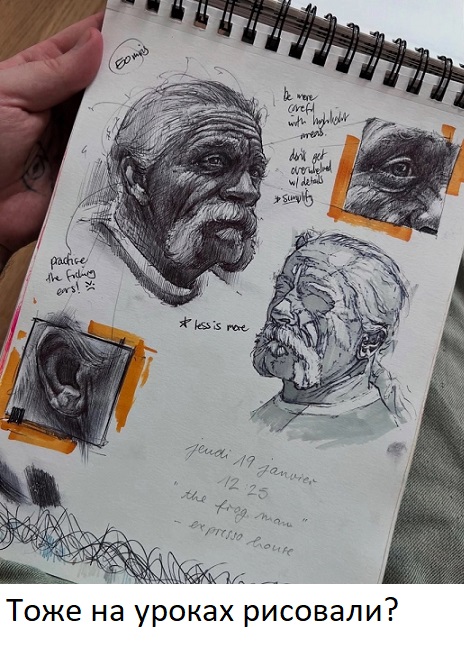 50 mins
Be more
careful
with highlight
areas.
don't get
overwhelmed
w/ details
* simplify
practise
the fucking
ears!
* less is more
jeudi 19 janvier
12:25
"the frog man"
- expresso house
Тоже на уроках рисовали?